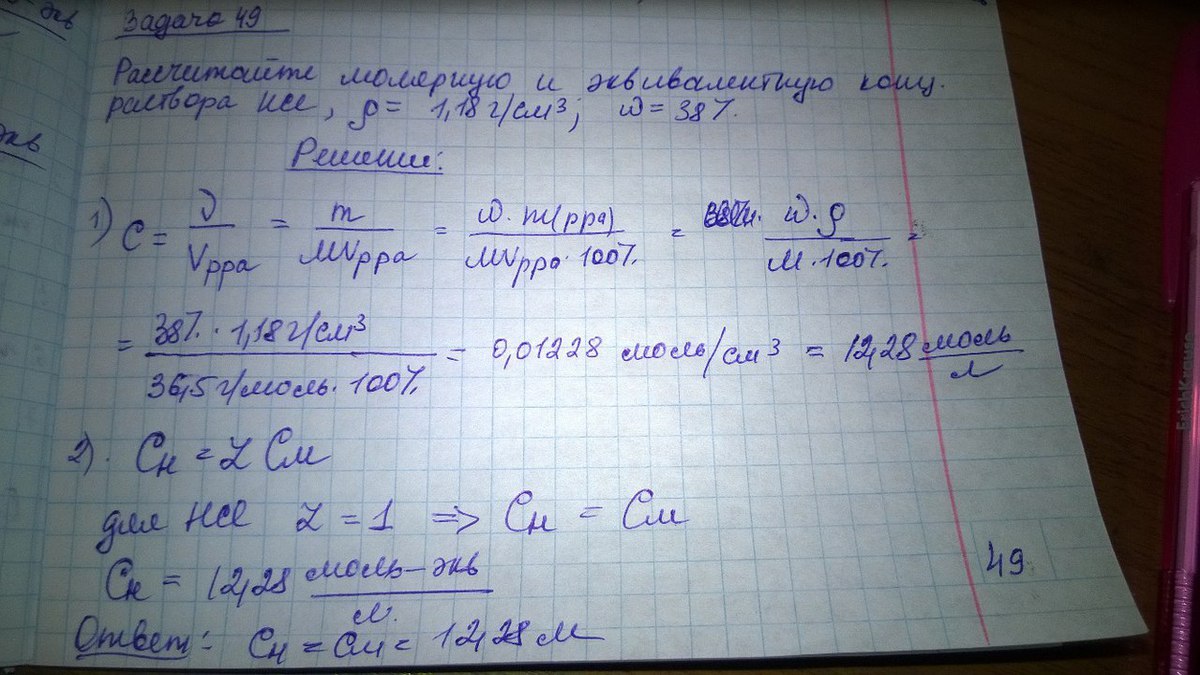 экв
Задача 49
Рассчитайте молярную и эквивалентную конц.
раствора HCl, ρ = 1,18 г/см³; ω = 38%.
экв
Решение:
1) C = ν/Vрра = m/MVрра = ω·m(рра)/MVрра·100% = ω·ρ/M·100% =
= 38%·1,18 г/см³/36,5 г/моль·100% = 0,01228 моль/см³ = 12,28 моль/л
2). Cн = Z Cм
для HCl Z = 1 => Cн = Cм
Cн = 12,28 моль-экв/л.
49
Ответ: Cн = Cм = 12,28 м
ErichKrause